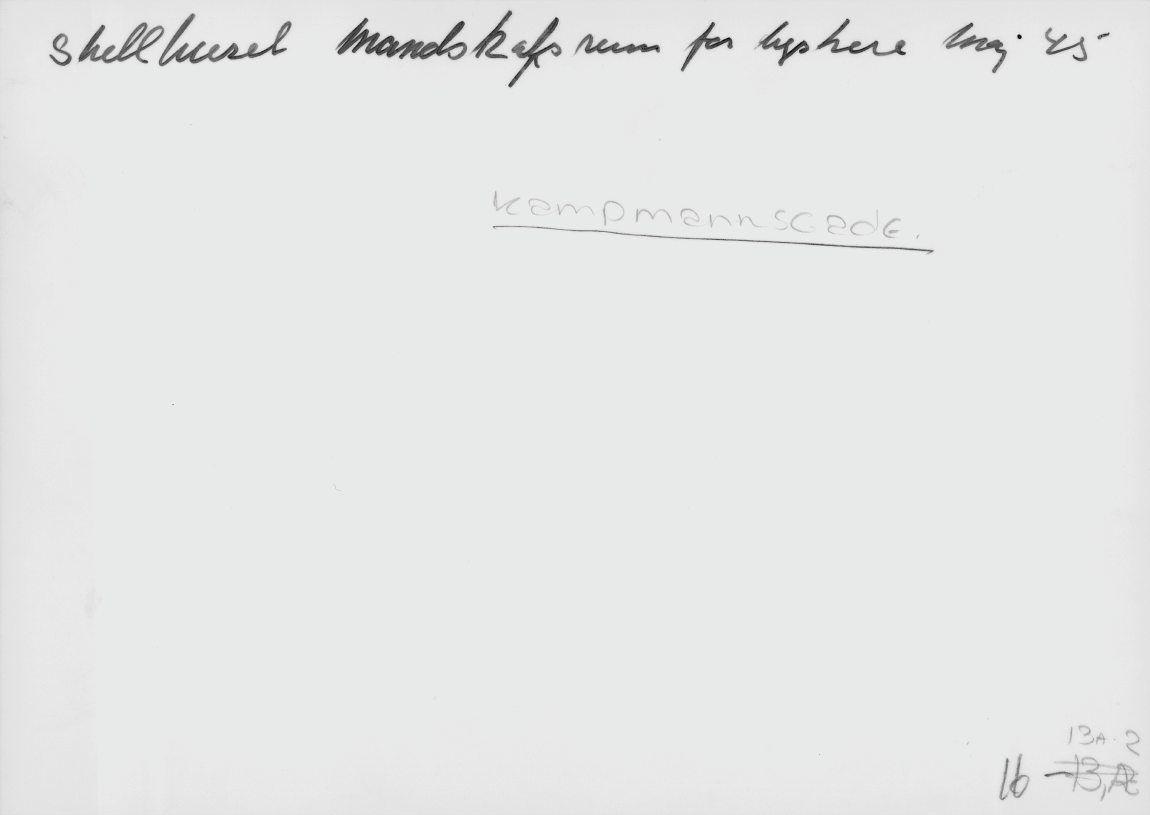 Shellhuset Mandskabsrum for tyskere Maj 45
Kampmannsgade.
13A.2
16 - 13,Æ